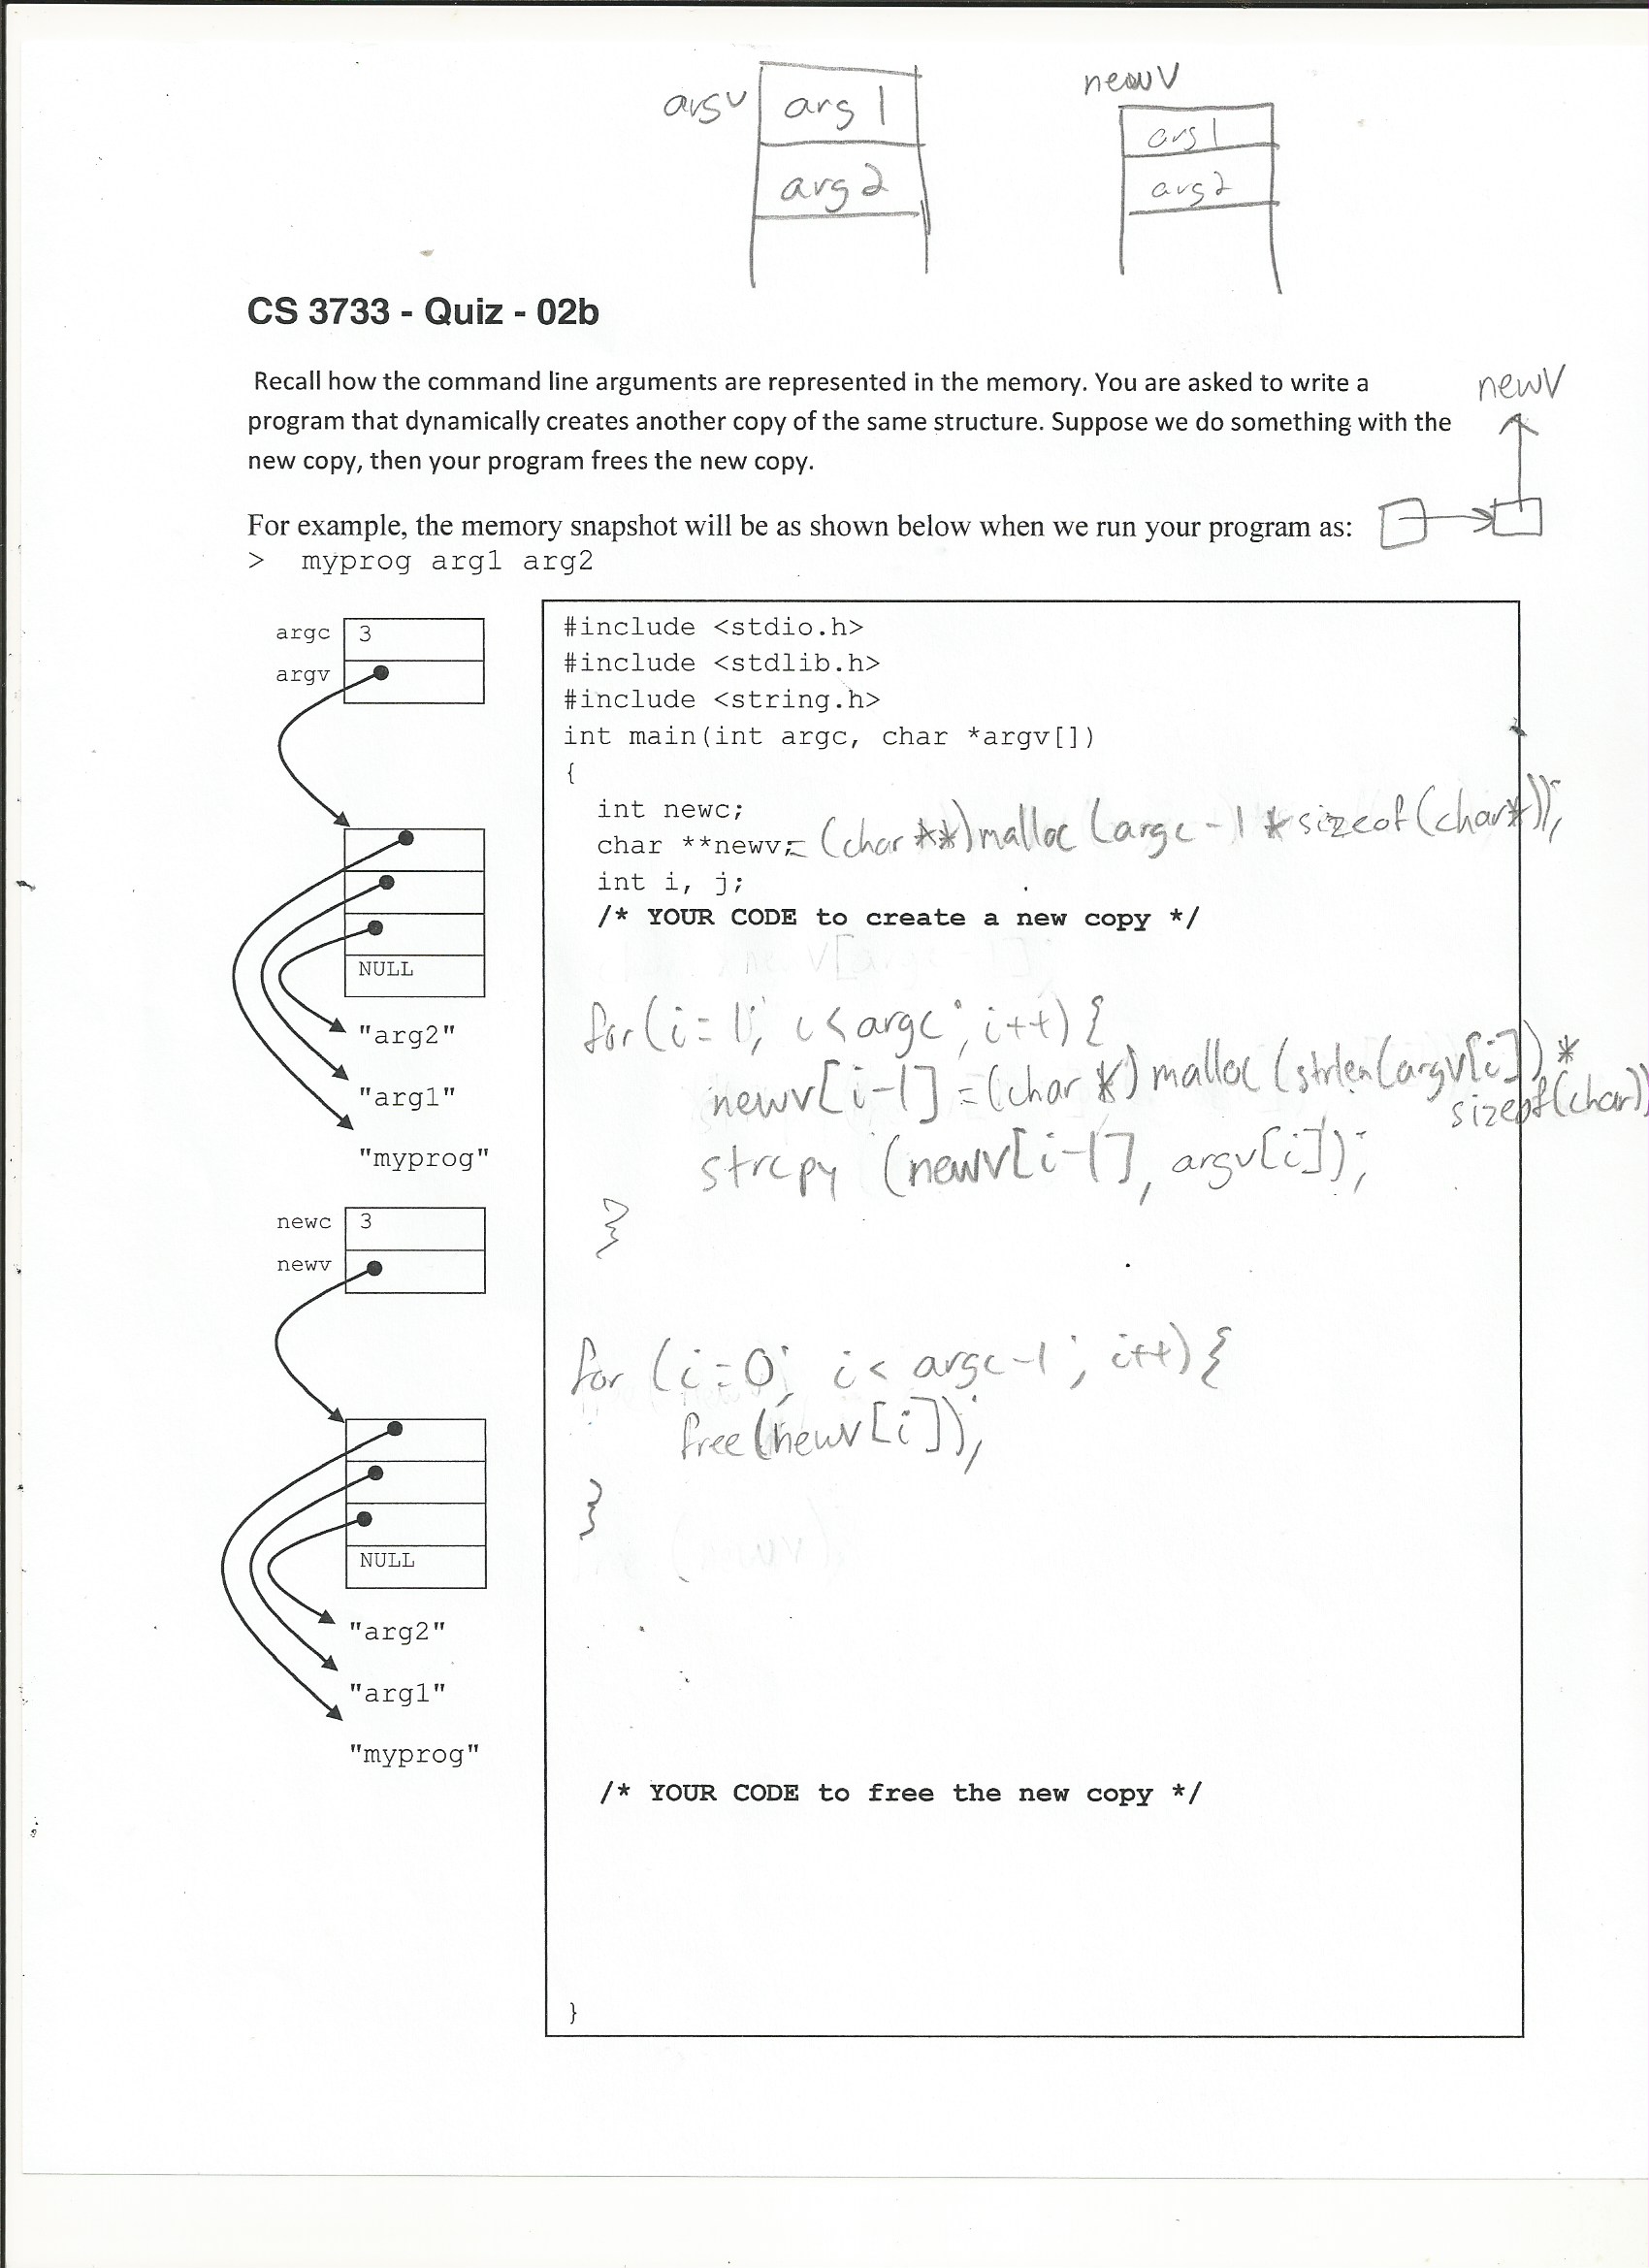 argv arg 1
arg 2
newV
arg 1
arg 2
CS 3733 - Quiz - 02b
Recall how the command line arguments are represented in the memory. You are asked to write a
program that dynamically creates another copy of the same structure. Suppose we do something with the
new copy, then your program frees the new copy.
newV
For example, the memory snapshot will be as shown below when we run your program as:
> myprog arg1 arg2
argc 3
argv
NULL
"arg2"
"arg1"
"myprog"
newc 3
newv
NULL
"arg2"
"arg1"
"myprog"
#include <stdio.h>
#include <stdlib.h>
#include <string.h>
int main(int argc, char *argv[])
{
int newc;
char **newv; = (char **)malloc (argc-1 * sizeof(char*));
int i, j;
/* YOUR CODE to create a new copy */
for(i=1; i<argc; i++){
newv[i-1] = (char *) malloc (strlen(argv[i]) *
sizeof(char))
strcpy (newv[i-1], argv[i]);
}
for (i=0; i< argc-1; i++){
free(newv[i]);
}
/* YOUR CODE to free the new copy */
}